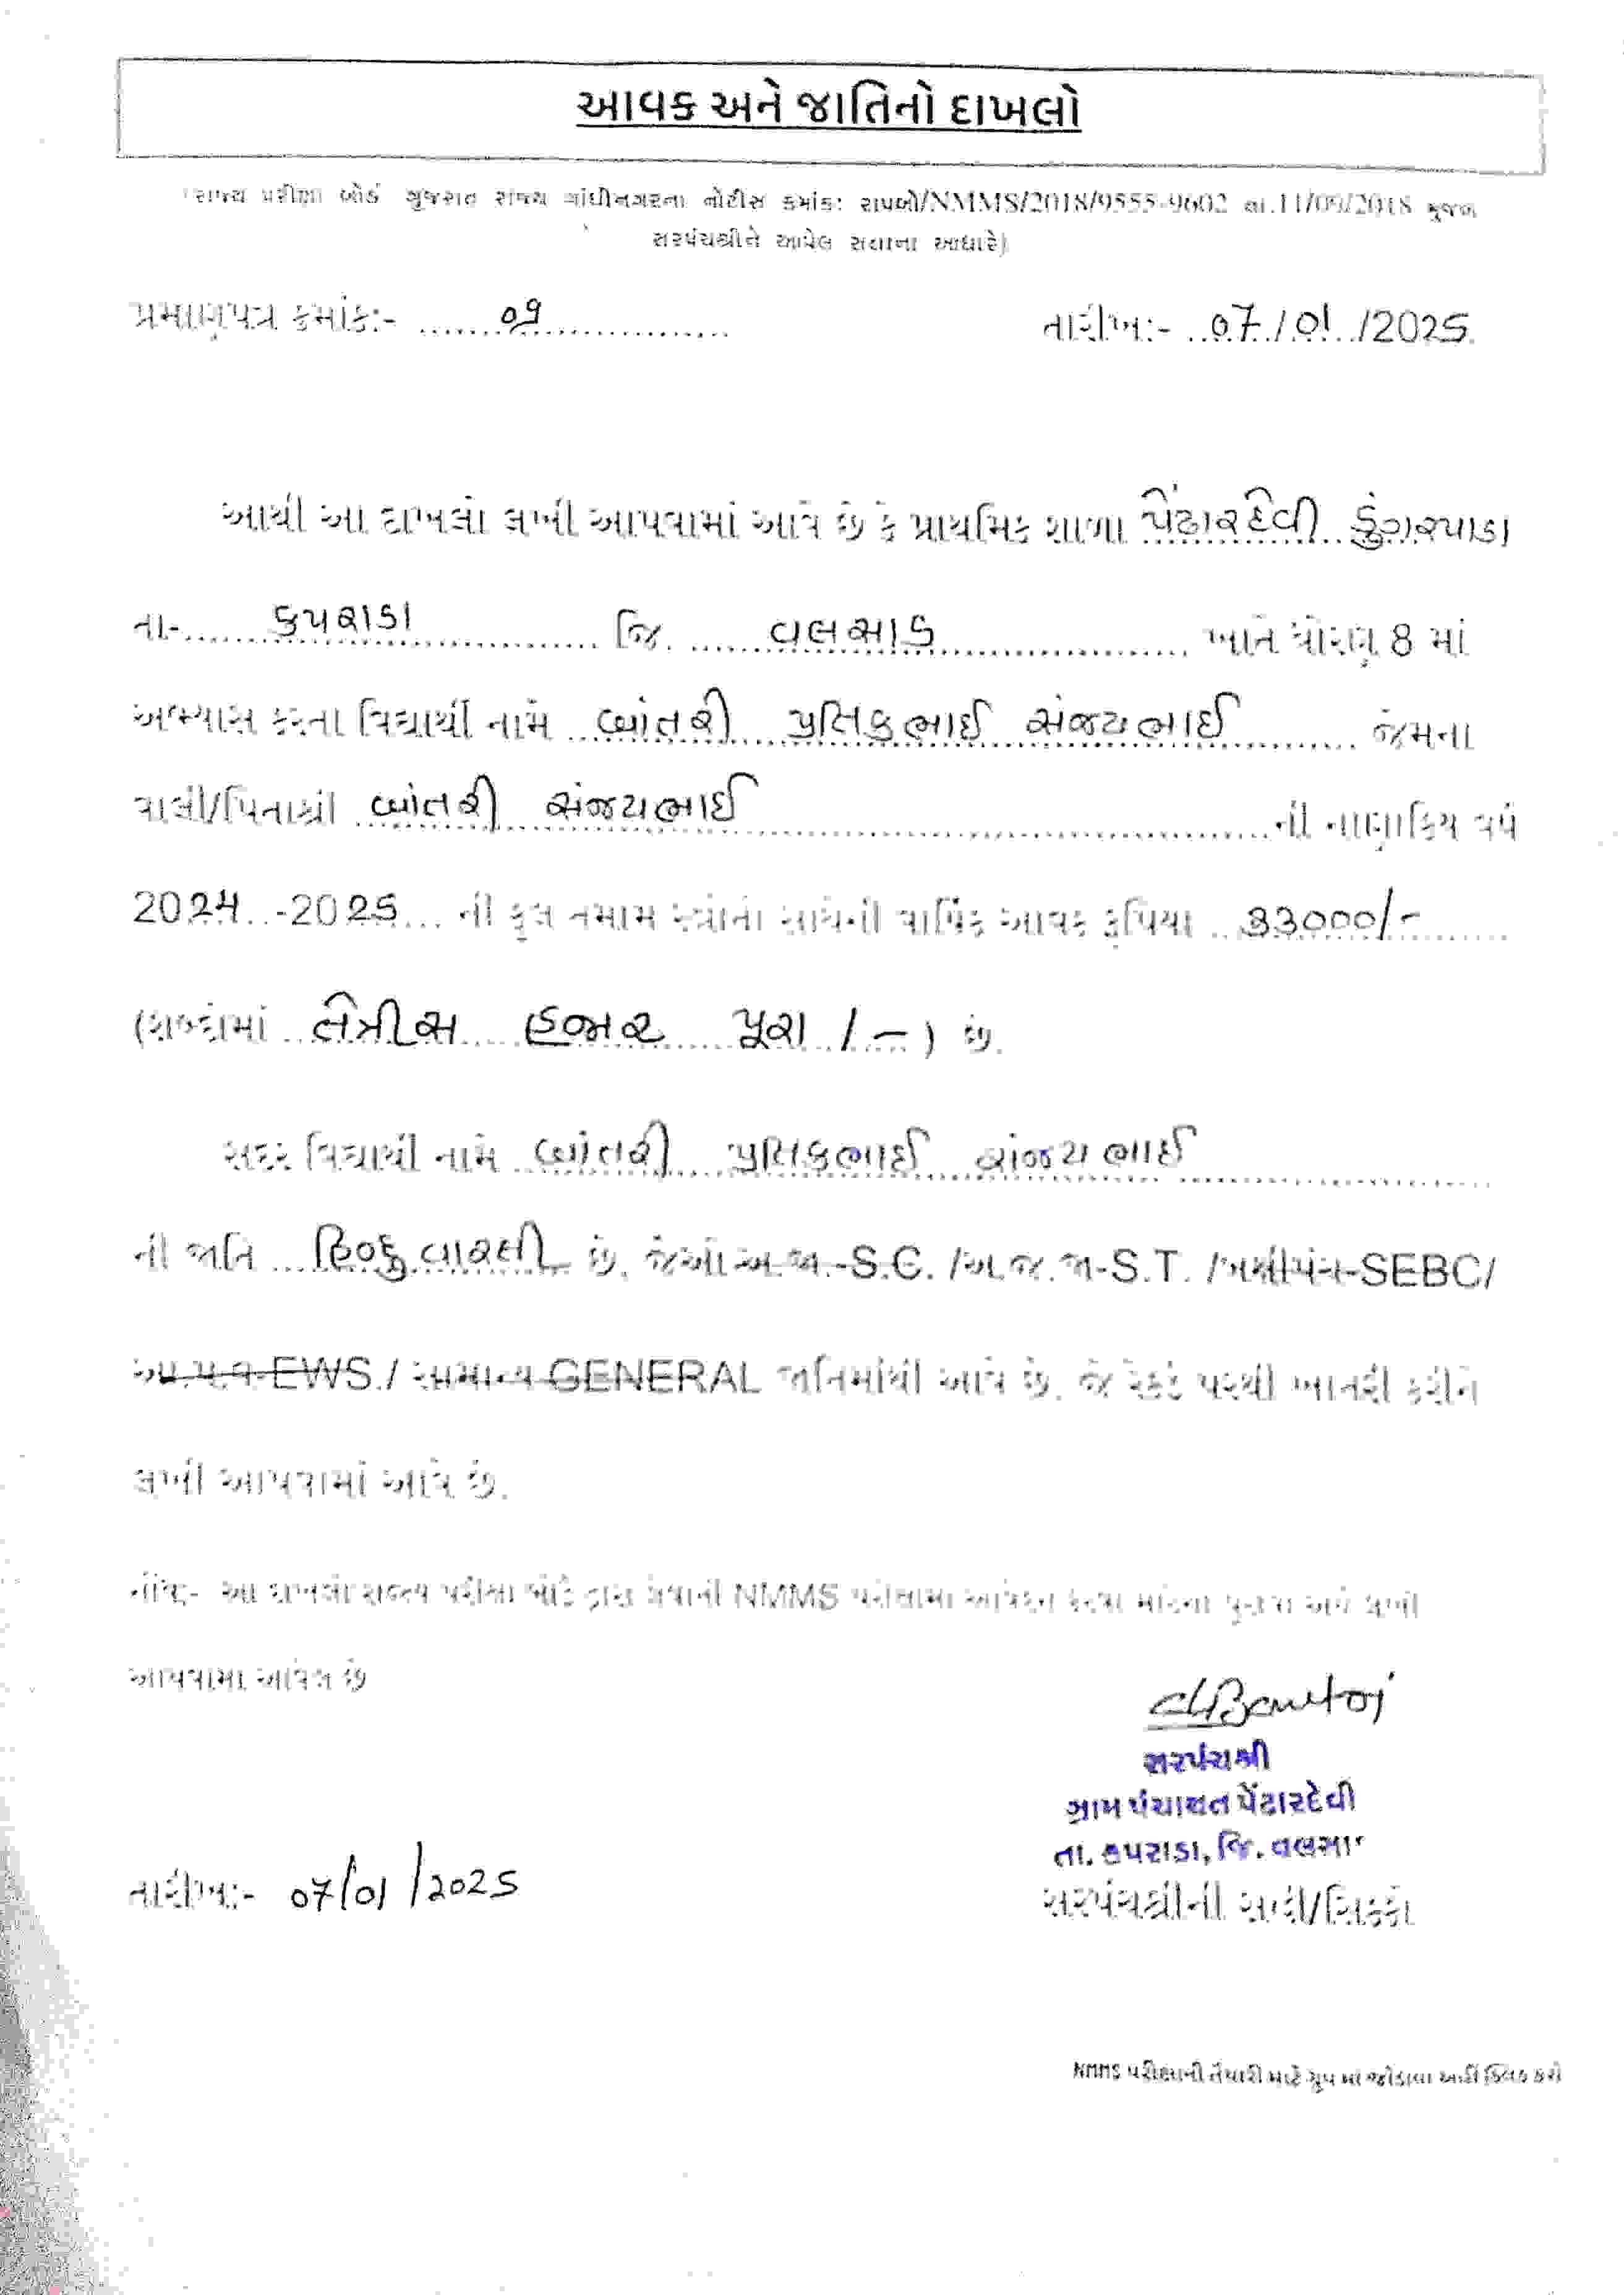 આવક અને જાતિનો દાખલો
(રાજ્ય પરીક્ષા બોર્ડ ગુજરાત રાજ્ય ગાંધીનગરના નોટીસ ક્રમાંક: રાપબો/NMMS/2018/9555-9602 તા.11/09/2018 મુજબ
સરપંચશ્રીને આપેલ સત્તાના આધારે)
પ્રમાણપત્ર ક્રમાંક:- 09
તારીખ:- 07/01/2025.
આથી આ દાખલો લખી આપવામાં આવે છે કે પ્રાથમિક શાળા પેંઢારદેવી ડુંગરપાડા
તા- કપરાડા જિ. વલસાડ ખાતે ધોરણ 8 માં
અભ્યાસ કરતા વિદ્યાર્થી નામે પ્રતિકભાઈ સંજયભાઈ જેમના
વાલી/પિતાશ્રી સંજયભાઈ ની નાણાકિય વર્ષ
2024-2025 ની કુલ તમામ સ્ત્રોતો સાથેની વાર્ષિક આવક રૂપિયા 33000/-
(શબ્દોમાં તેત્રીસ હજાર પૂરા /-) છે.
સદર વિદ્યાર્થી નામે પ્રતિકભાઈ સંજયભાઈ
ની જાતિ હિન્દુ વારલી છે. જેઓ અ.જા.-S.C. /અ.જ.જા-S.T. /બક્ષીપંચ-SEBC/
આ.પ.વ-EWS./ સામાન્ય-GENERAL જાતિમાંથી આવે છે. જે રેકર્ડ પરથી ખાતરી કરીને
લખી આપવામાં આવે છે.
નોંધ:- આ દાખલો રાજ્ય પરીક્ષા બોર્ડ દ્વારા લેવાની NMMS પરીક્ષામાં આવેદન કરવા માટેના પુરાવા અર્થે લખી
આપવામાં આવેલ છે
સરપંચશ્રી
ગ્રામ પંચાયત પેંઢારદેવી
તા. કપરાડા, જિ. વલસાડ
તારીખ:- 07/01/2025
સરપંચશ્રીની સહી/સિક્કો
NMMS પરીક્ષાની તૈયારી માટે ગ્રુપ માં જોડાવા અહીં ક્લિક કરો